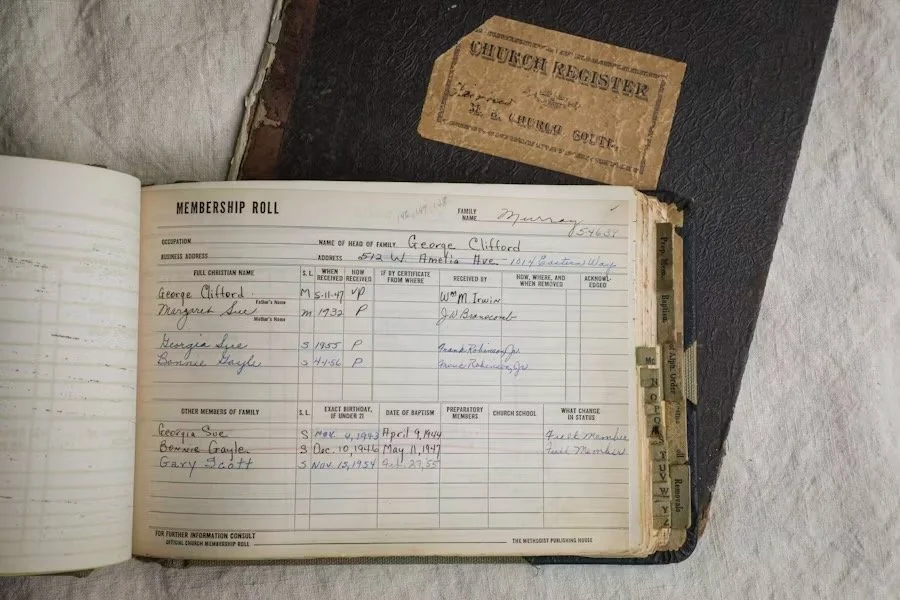 CHURCH REGISTER
M. E. CHURCH SOUTH.
MEMBERSHIP ROLL
FAMILY NAME Murray
OCCUPATION NAME OF HEAD OF FAMILY George Clifford
BUSINESS ADDRESS ADDRESS 512 W Amelia Ave. 1014 Eastern Way
FULL CHRISTIAN NAME S. L. WHEN RECEIVED HOW RECEIVED IF BY CERTIFICATE FROM WHERE RECEIVED BY HOW, WHERE, AND WHEN REMOVED ACKNOWLEDGED
George Clifford M 5-11-47 VP Wm M Irwin
Father's Name
Margaret Sue m 1932 P J W Branscomb
Mother's Name
Georgia Sue S 1955 P Frank Robinson, Jr.
Bonnie Gayle S 4-4-56 P Robinson, Jr
OTHER MEMBERS OF FAMILY S. L. EXACT BIRTHDAY, IF UNDER 21 DATE OF BAPTISM PREPARATORY MEMBERS CHURCH SCHOOL WHAT CHANGE IN STATUS
Georgia Sue S Nov. 4, 1943 April 9, 1944 Full Member
Bonnie Gayle S Dec. 10, 1946 May 11, 1947 Full Member
Gary Scott S Nov. 15, 1954
FOR FURTHER INFORMATION CONSULT
OFFICIAL CHURCH MEMBERSHIP ROLL THE METHODIST PUBLISHING HOUSE
Prep. Mem.
Baptism
Mc
N
O
P
R
S
T
U V
W
Y
Removals